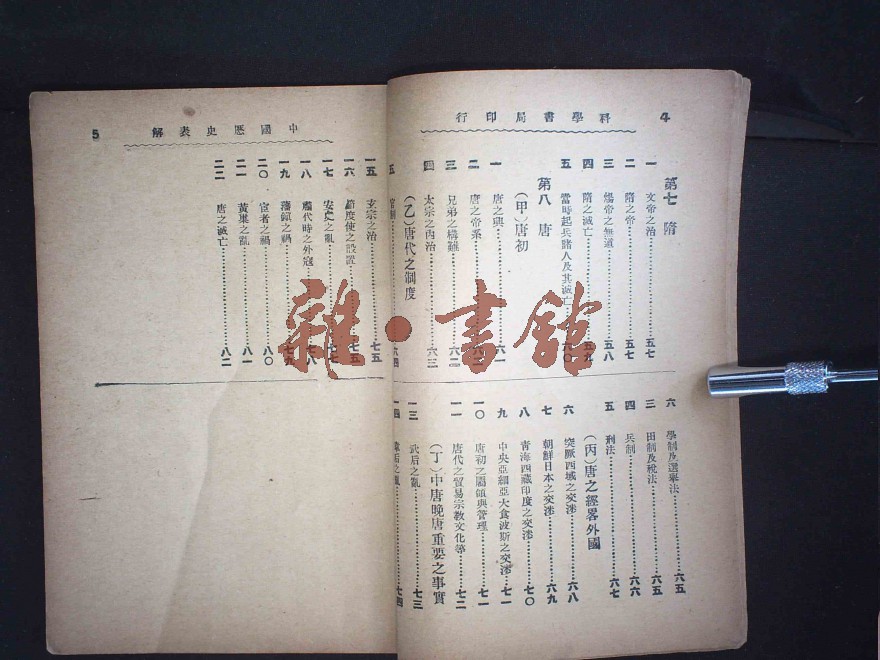 4
科學書局印行
第七 隋
一 文帝之治…………五七
二 隋之帝…………五七
三 煬帝之無道…………五八
四 隋之滅亡…………五九
五 當時起兵諸人及其滅亡……六〇
第八 唐
(甲)唐初
一 唐之興…………六一
二 唐之帝系…………六二
三 兄弟之構難…………六二
四 太宗之內治…………六三
(乙)唐代之制度
五 官制…………六四
六 學制及選舉法…………六五
三 田制及稅法…………六五
四 兵制…………六六
五 刑法…………六七
(丙)唐之經畧外國
六 突厥西域之交涉…………六八
七 朝鮮日本之交涉…………六九
八 青海西藏印度之交涉…………七〇
九 中央亞細亞大食波斯之交涉……七一
一〇 唐初之屬領與管理…………七一
一一 唐代之貿易宗教文化等……七二
(丁)中唐晚唐重要之事實
一三 武后之亂…………七三
一四 韋后之亂…………七四
中國歷史表解
5
一五 玄宗之治…………七五
一六 節度使之設置…………七五
一七 安史之亂…………七七
一八 代時之外寇…………七八
一九 藩鎮之禍…………七九
二〇 宦者之禍…………八〇
二一 黃巢之亂…………八一
二二 唐之滅亡…………八二
雜·書館